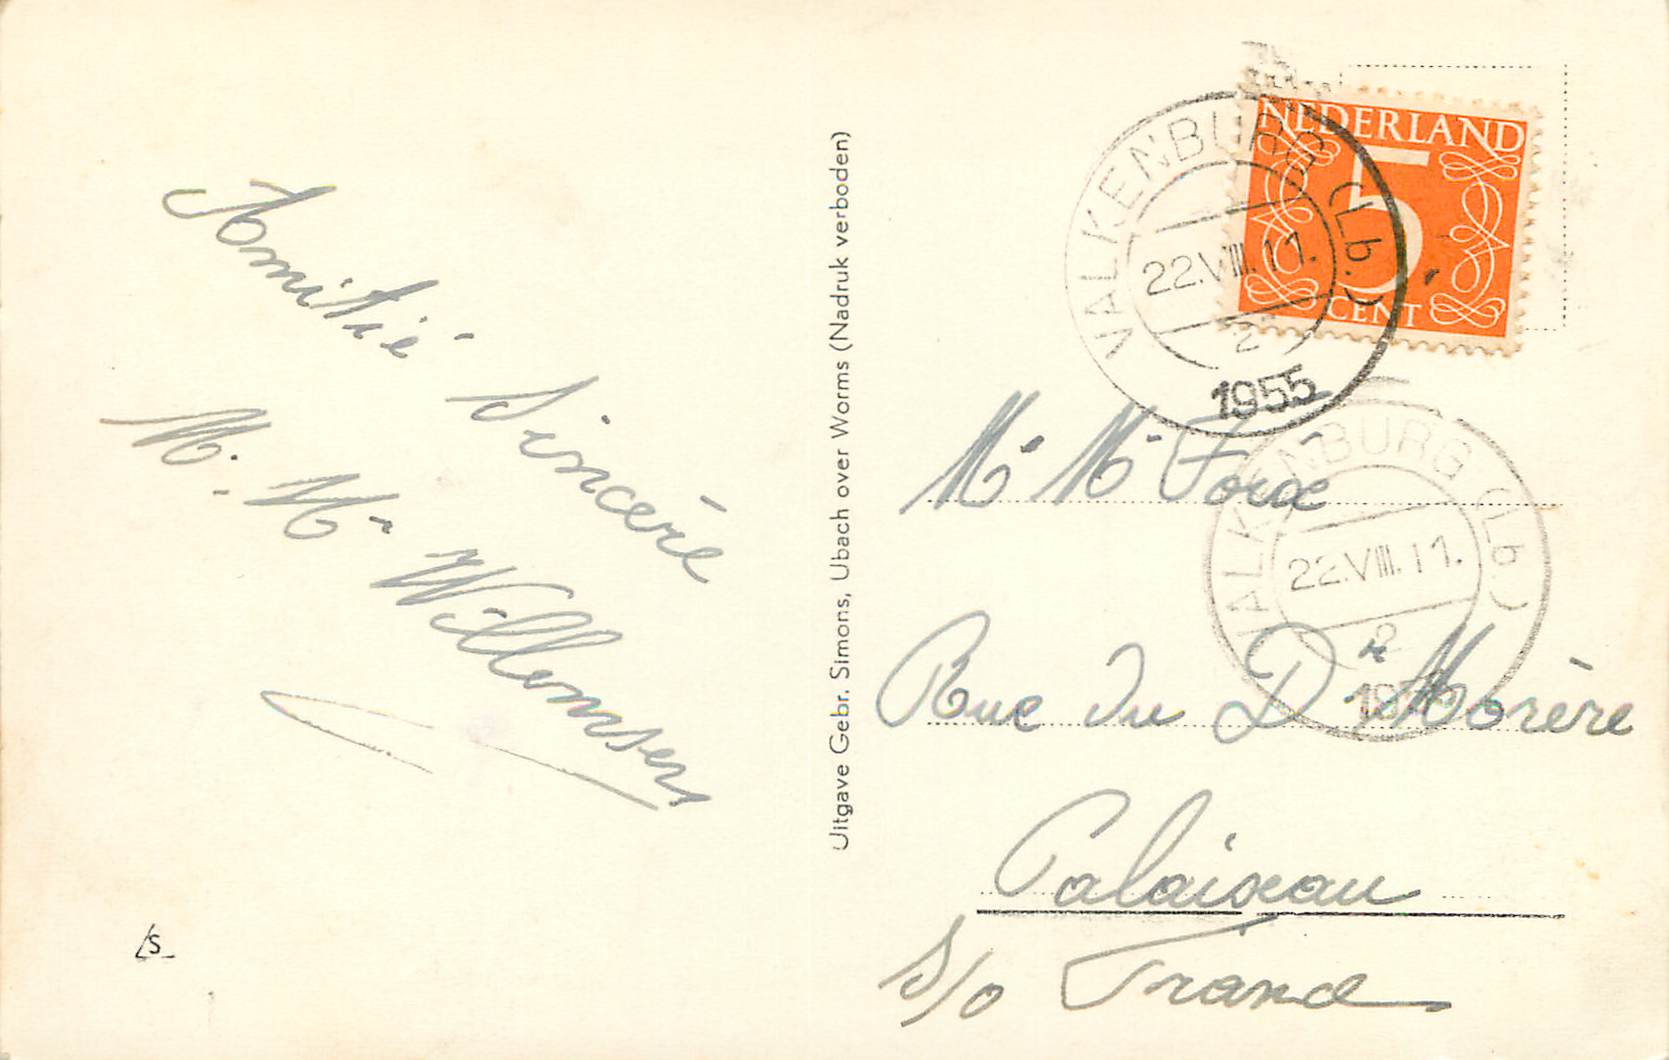 Amitié Sincère
M. Me Willemsen
Uitgave Gebr. Simons, Ubach over Worms (Nadruk verboden)
NEDERLAND
5
CENT
VALKENBURG (Lb.)
22.VIII.11.
2
1955
VALKENBURG (Lb.)
22.VIII.11.
2
1955
Mr Me
Rue du Dr Morère
Palaiseau
S/O France